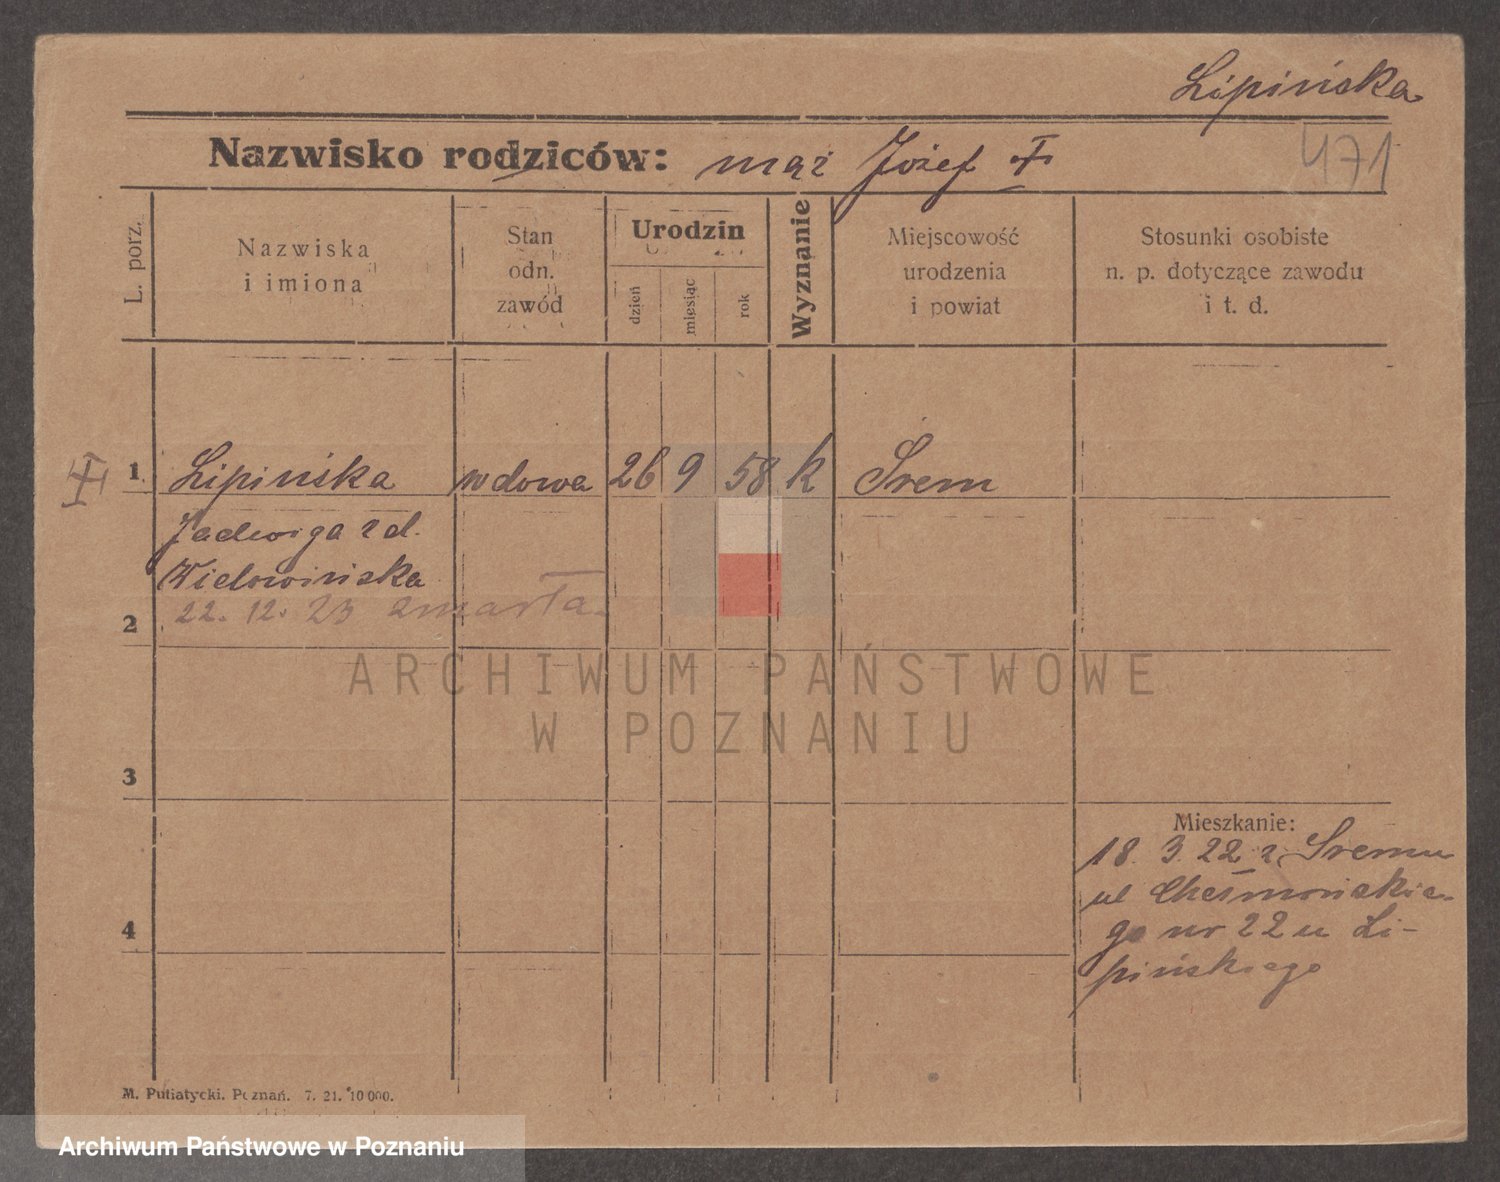 Lipińska
471
Nazwisko rodziców: mąż Józef
L. porz.
Nazwiska
i imiona
Stan
odn.
zawód
Urodzin
dzień
miesiąc
rok
Wyznanie
Miejscowość
urodzenia
i powiat
Stosunki osobiste
n. p. dotyczące zawodu
i t. d.
1 Lipińska wdowa 26 9 58 k Śrem
Jadwiga zd.
22. 12. 23 zmarła.
2
ARCHIWUM PAŃSTWOWE
W POZNANIU
3
Mieszkanie:
18. 3. 22 z Śremu
ul
go nr 22 u Li-
pińskiego
4
M. Putiatycki. Poznań. 7. 21. 10 000.
Archiwum Państwowe w Poznaniu